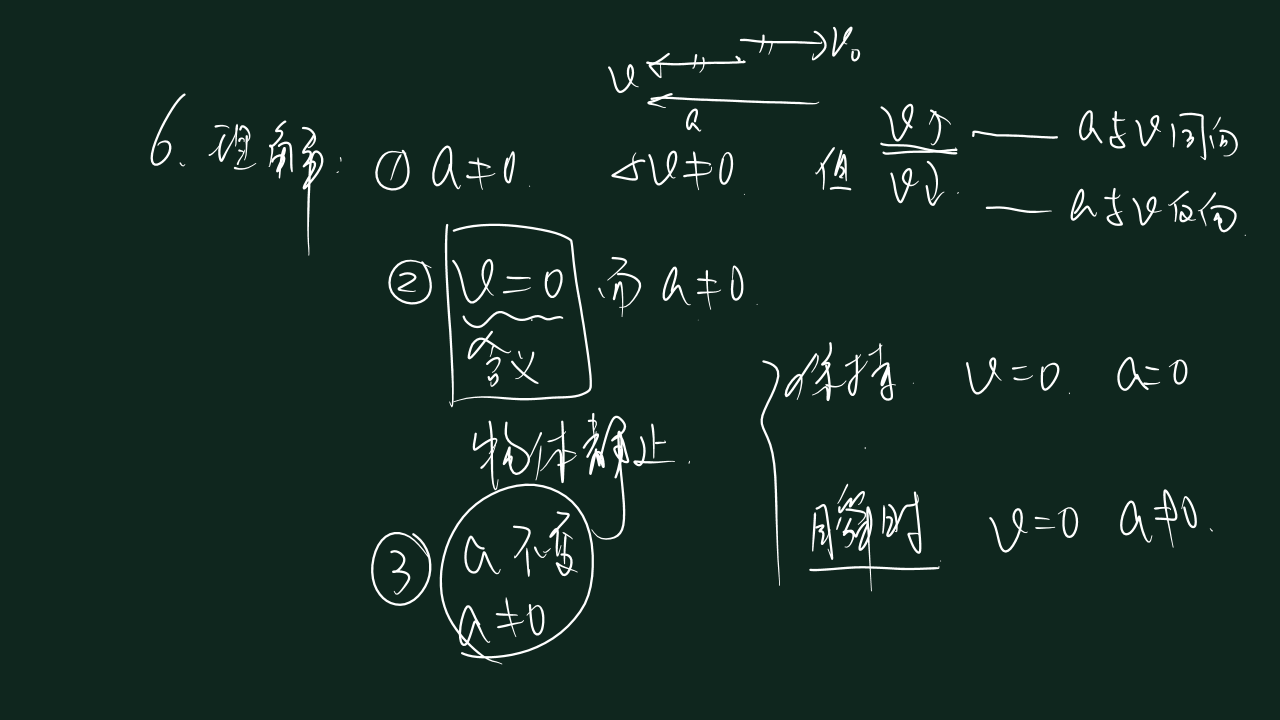 v₀
v
a
6. 理解: ① a≠0. Δv≠0. 但 v↑ —— a与v同向
v↓. —— a与v反向.
② v=0 而 a≠0.
含义
保持. v=0. a=0
物体静止.
瞬时 v=0 a≠0.
③ a不变
a≠0